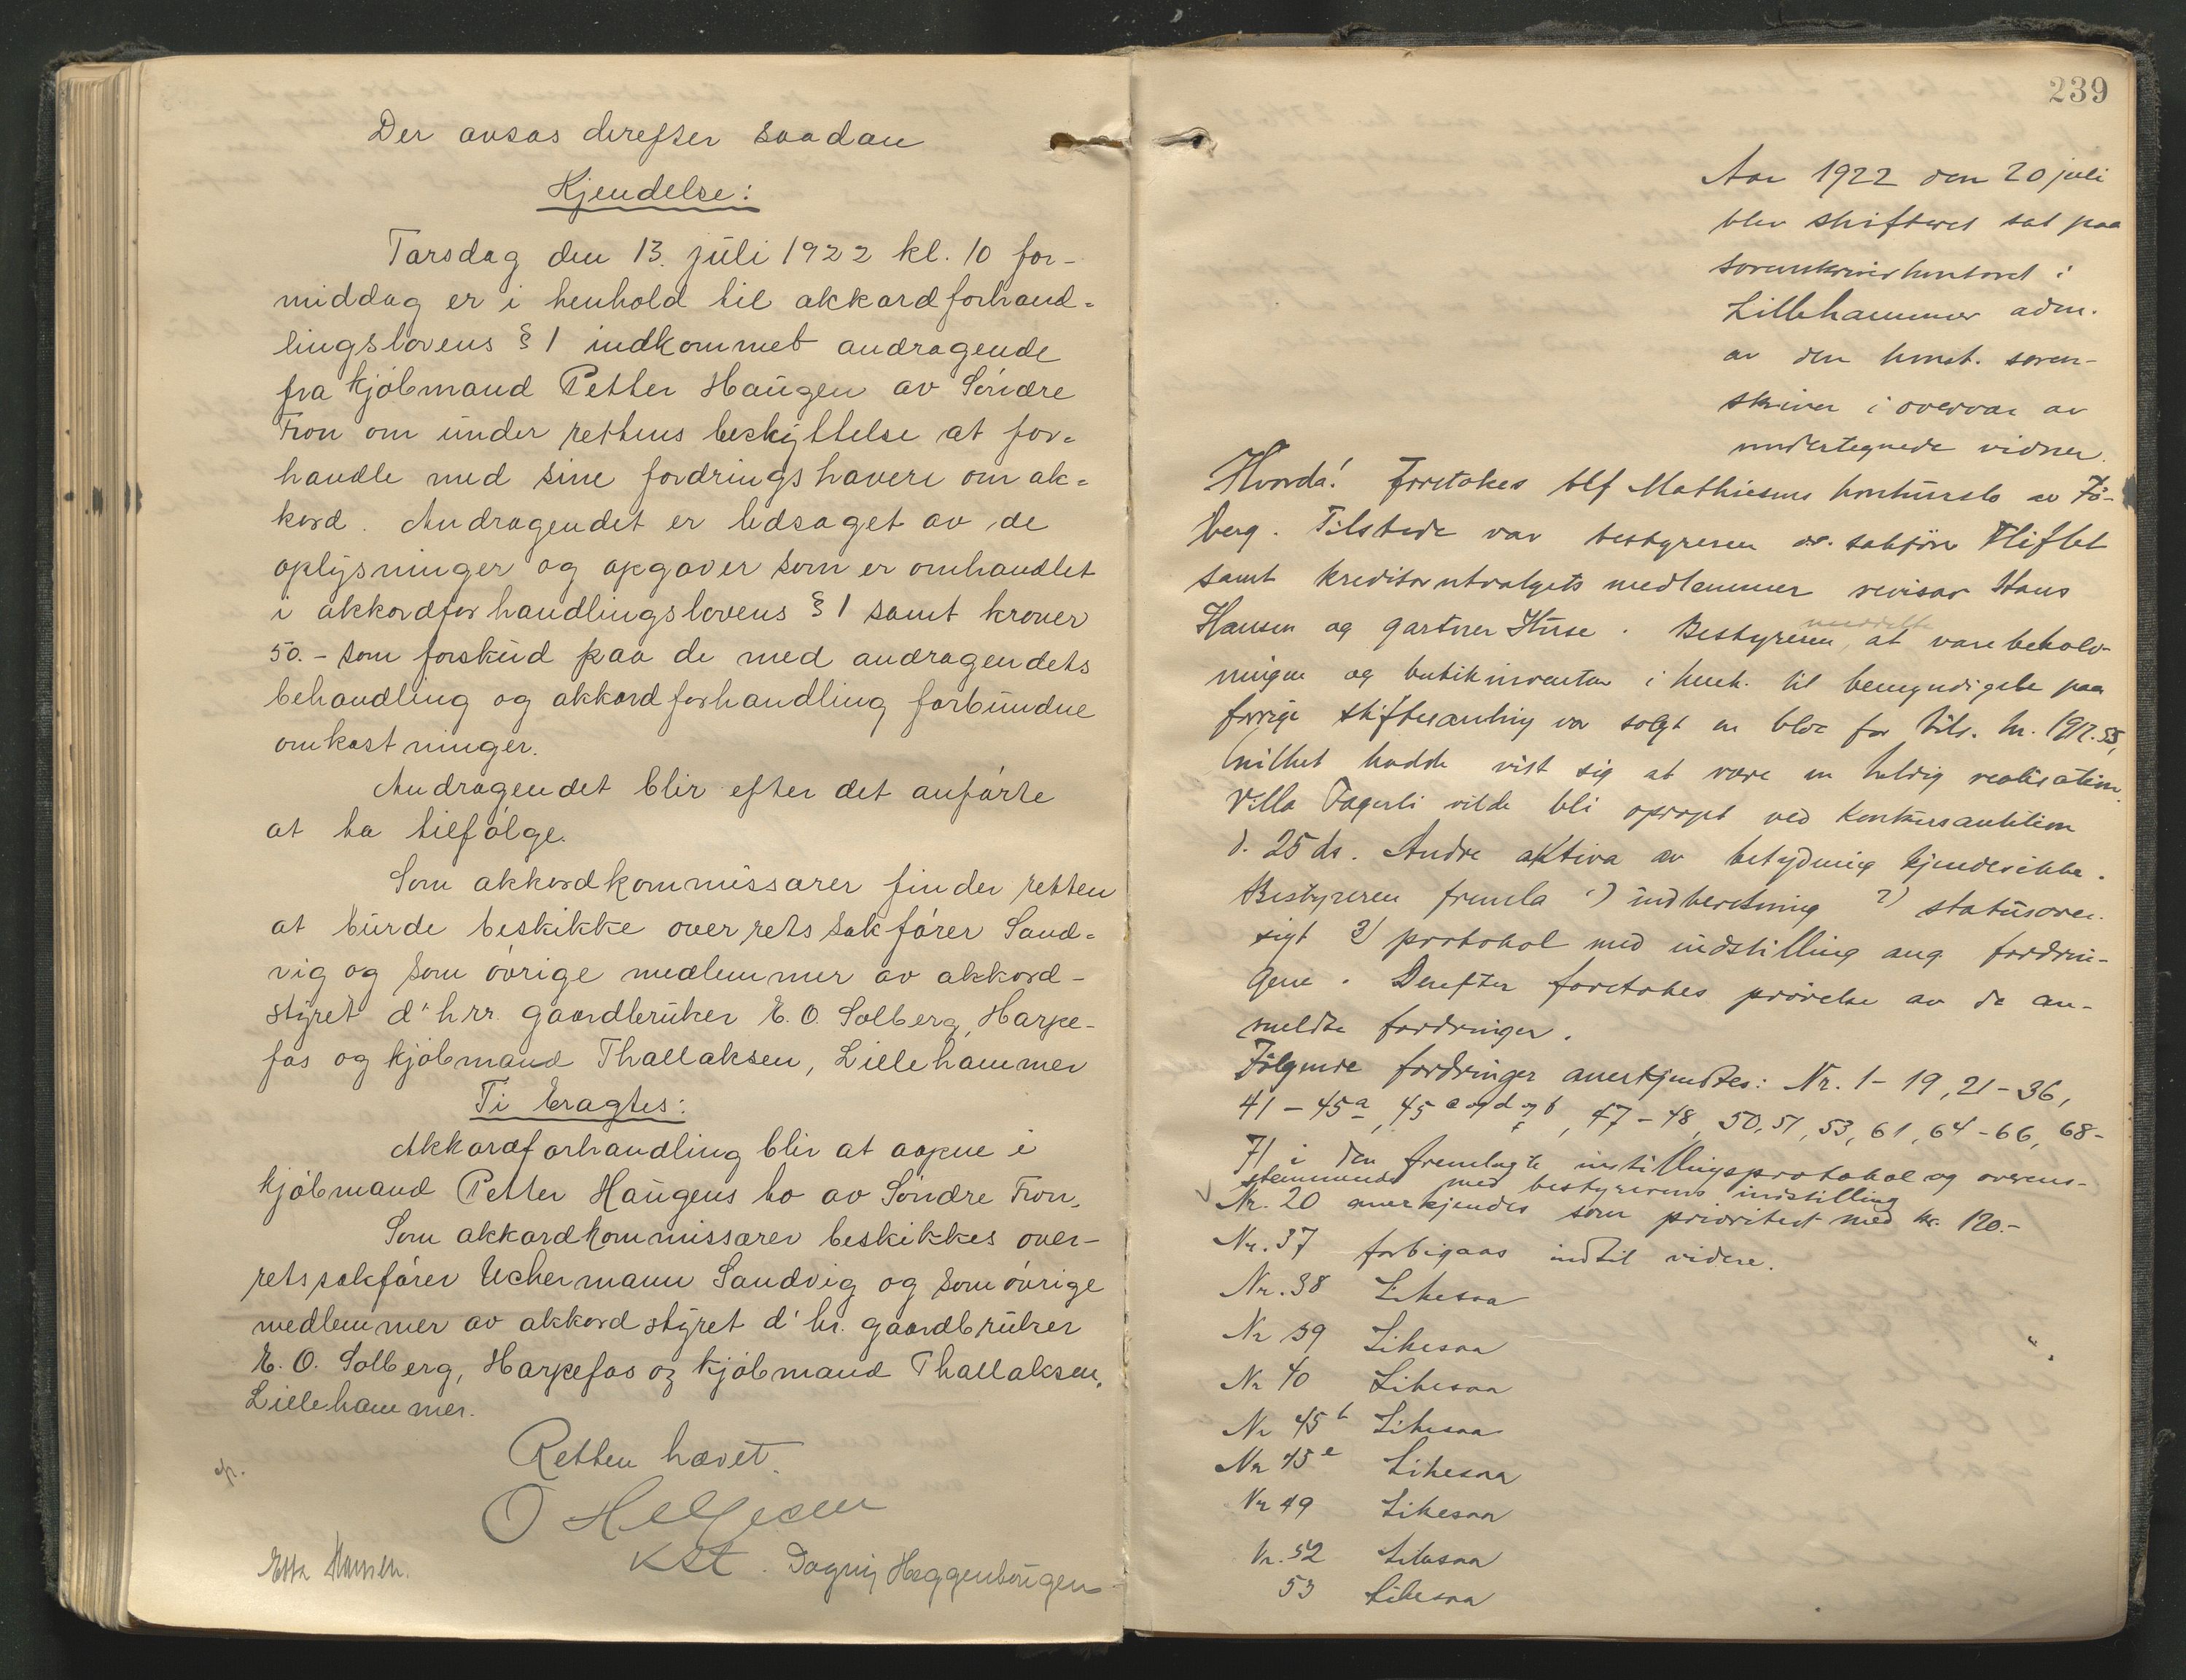 Der avsas derefter saadan
Kjendelse:
Torsdag den 13. juli 1922 kl. 10 for-
middag er i henhold til akkordforhand-
lingslovens § 1 indkommet andragende
fra kjøbmand Petter Haugen av Søndre
Fron om under rettens beskyttelse at for-
handle med sine fordringshavere om ak-
kord. Andragendet er ledsaget av de
oplysninger og opgaver som er omhandlet
i akkordforhandlingslovens § 1 samt kroner
50.- som forskud paa de med andragendets
behandling og akkordforhandling forbundne
omkostninger.
Andragendet blir efter det anførte
at ta tilfølge.
Som akkordkommissærer finder retten
at burde beskikke overretssakfører Sand-
vig og som øvrige medlemmer av akkord-
styret d'hrr. gaardbruker E. O. Solberg, Harpe-
fos og kjøbmand Thallaksen, Lillehammer
Ti eragtes:
Akkordforhandling blir at aapne i
kjøbmand Petter Haugens bo av Søndre Fron.
Som akkordkommissærer beskikkes over-
retssakfører Uchermann Sandvig og som øvrige
medlemmer av akkordstyret d'hr. gaardbruker
E. O. Solberg, Harpefos og kjøbmand Thallaksen,
Lillehammer.
Retten hævet.
O Helgesen
kst.
Hansen. Dagny Heggenhougen
239
Aar 1922 den 20 juli
blev skifteret sat paa
sorenskriverkontoret i
Lillehammer adm.
av den konst. soren-
skriver i overvær av
undertegnede vidner.
Hvorda! Foretokes Alf Mathiesens konkursbo av Få-
berg. Tilstede var bestyreren o.r.sakfører Kliflet
samt kreditorutvalgets medlemmer revisor Hans
Hansen og gartner Huse. Bestyreren meddelte at varebehold-
ningen og butikinventar i henh. til bemyndigelse paa
forrige skiftesamling var solgt en bloc for tils. kr. 1912.55,
hvilket hadde vist sig at være en heldig realisation.
Villa Fagerli vilde bli opropt ved konkursauktion
d. 25 ds. Andre aktiva av betydning kjendes ikke.
Bestyreren fremla 1) indberetning 2) statusover-
sigt 3) protokol med indstilling ang fordrin-
gene. Derefter foretokes prøvelse av de an-
meldte fordringer.
Følgende fordringer anerkjendtes: Nr. 1-19, 21-36,
41-45a, 45 c og d og f, 47-48, 50, 51, 53, 61, 64-66, 68-
71 i den fremlagte instillingsprotokol og overens-
stemmende med bestyrerens indstilling
Nr. 20 anerkjendes som prioritert med kr. 120.-
Nr. 37 forbigaas indtil videre.
Nr. 38 Likesaa
Nr 39 Likesaa
Nr 40 Likesaa
Nr 45 b Likesaa
Nr 45 e Likesaa
Nr 49 Likesaa
Nr. 52 Likesaa
53 Likesaa